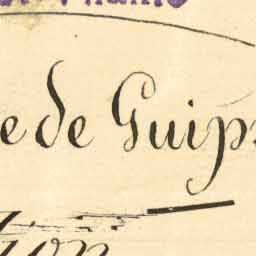 e de Guip
tion